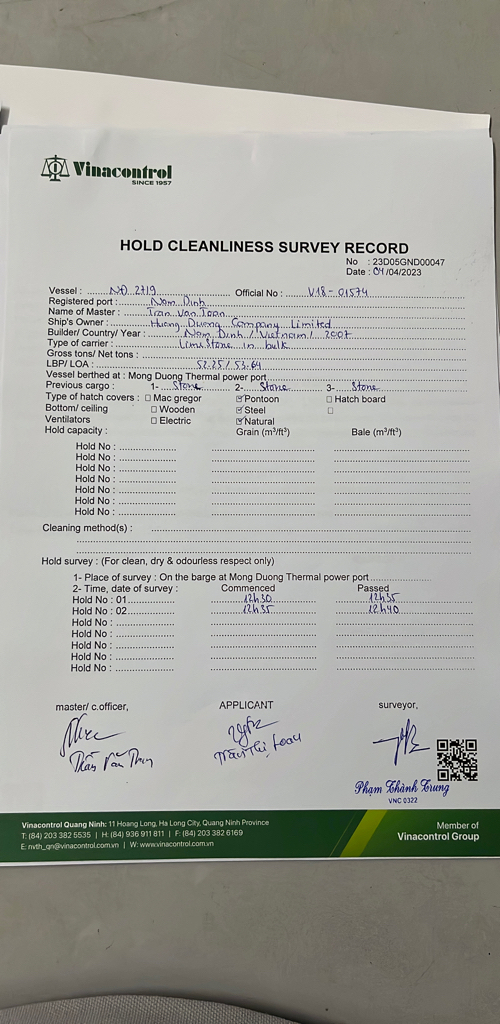 Vinacontrol
SINCE 1957
HOLD CLEANLINESS SURVEY RECORD
No : 23D05GND00047
Date : 04/04/2023
Vessel : NĐ 2719 Official No : V18-01574
Registered port : Nam Dinh
Name of Master : Tran Van Toan
Ship's Owner : Huong Duong Company Limited
Builder/ Country/ Year : Nam Dinh / Vietnam / 2007
Type of carrier : Lime Stone in bulk
Gross tons/ Net tons :
LBP/ LOA : 52.25 / 53.64
Vessel berthed at : Mong Duong Thermal power port
Previous cargo : 1- Stone 2- Stone 3- Stone
Type of hatch covers : ☐ Mac gregor ☑ Pontoon ☐ Hatch board
Bottom/ ceiling ☐ Wooden ☑ Steel ☐
Ventilators ☐ Electric ☑ Natural
Hold capacity : Grain (m³/ft³) Bale (m³/ft³)
Hold No :
Hold No :
Hold No :
Hold No :
Hold No :
Hold No :
Hold No :
Cleaning method(s) :
Hold survey : (For clean, dry & odourless respect only)
1- Place of survey : On the barge at Mong Duong Thermal power port
2- Time, date of survey : Commenced Passed
Hold No : 01 12h30 12h35
Hold No : 02 12h35 12h40
Hold No :
Hold No :
Hold No :
Hold No :
Hold No :
master/ c.officer, APPLICANT surveyor,
Trần Văn Trần Thị Loan
Phạm Thành Trung
VNC 0322
Vinacontrol Quang Ninh: 11 Hoang Long, Ha Long City, Quang Ninh Province
T: (84) 203 382 5535 | H: (84) 936 911 811 | F: (84) 203 382 6169
E: nvth_qn@vinacontrol.com.vn | W: www.vinacontrol.com.vn
Member of
Vinacontrol Group